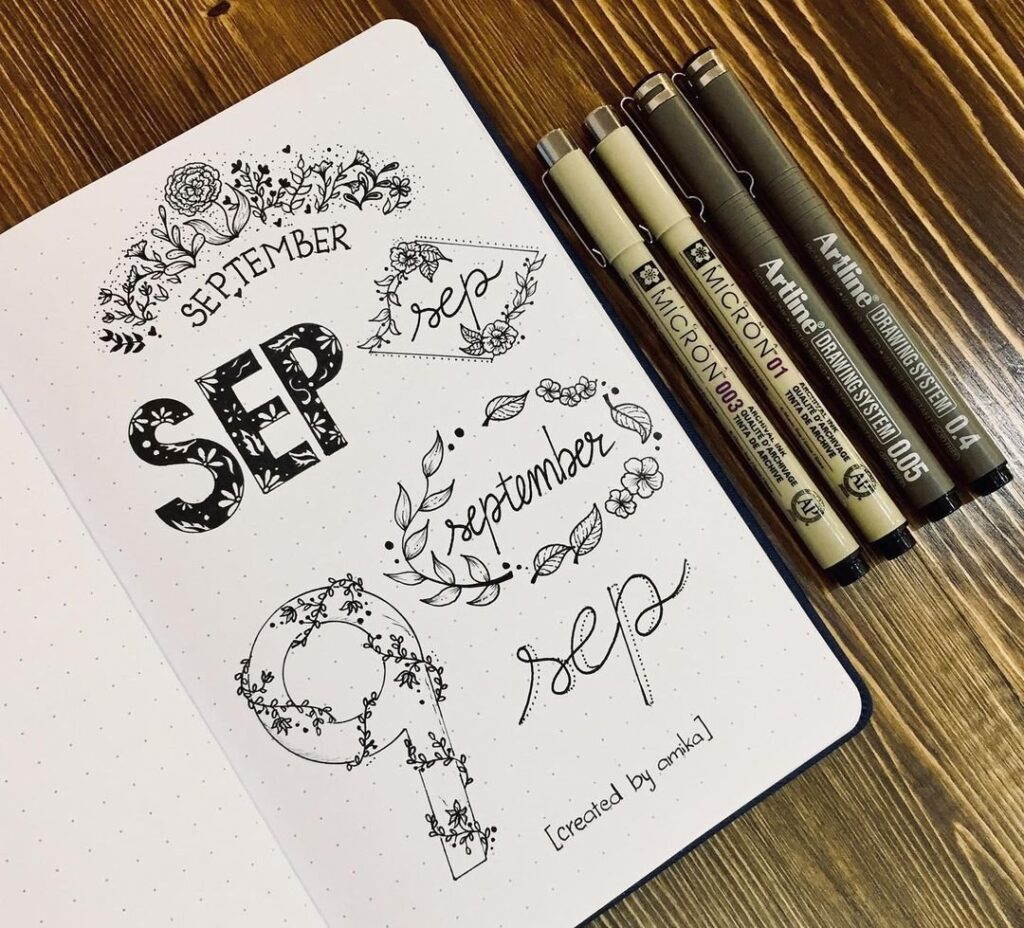 SEPTEMBER
sep
SEP
september
9
sep
[created by amika]
MICRON 003
ARCHIVAL INK
QUALITÉ D'ARCHIVAGE
TINTA DE ARCHIVE
MICRON 01
ARCHIVAL INK
QUALITÉ D'ARCHIVAGE
TINTA DE ARCHIVE
Artline® DRAWING SYSTEM 0.05
Artline® DRAWING SYSTEM 0.4